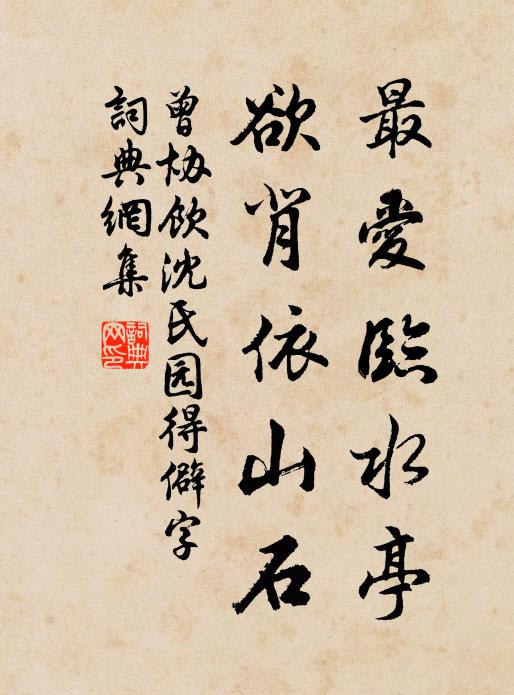 最愛臨水亭
欲肖依山石
曾協飲沈氏园得僻字
詞典網集
詞典网印